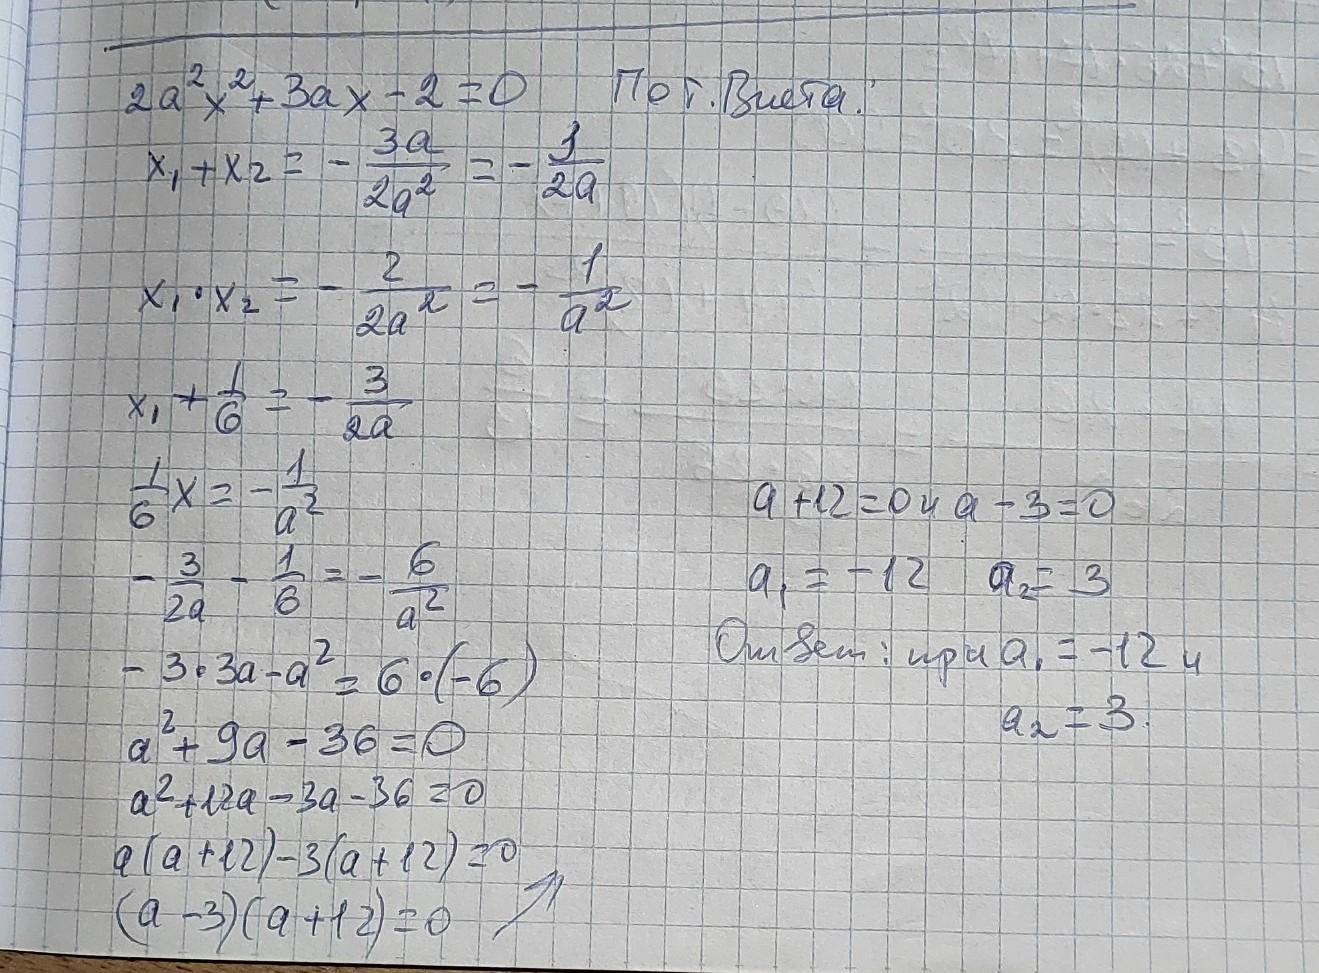 2a²x² + 3ax - 2 = 0 По т. Виета:
x₁ + x₂ = - 3a/2a² = - 3/2a
x₁ · x₂ = - 2/2a² = - 1/a²
x₁ + 1/6 = - 3/2a
1/6 x = - 1/a²
- 3/2a - 1/6 = - 6/a²
- 3·3a - a² = 6·(-6)
a² + 9a - 36 = 0
a² + 12a - 3a - 36 = 0
a(a + 12) - 3(a + 12) = 0
(a - 3)(a + 12) = 0
a + 12 = 0 и a - 3 = 0
a₁ = -12 a₂ = 3
Ответ: при a₁ = -12 и
a₂ = 3.